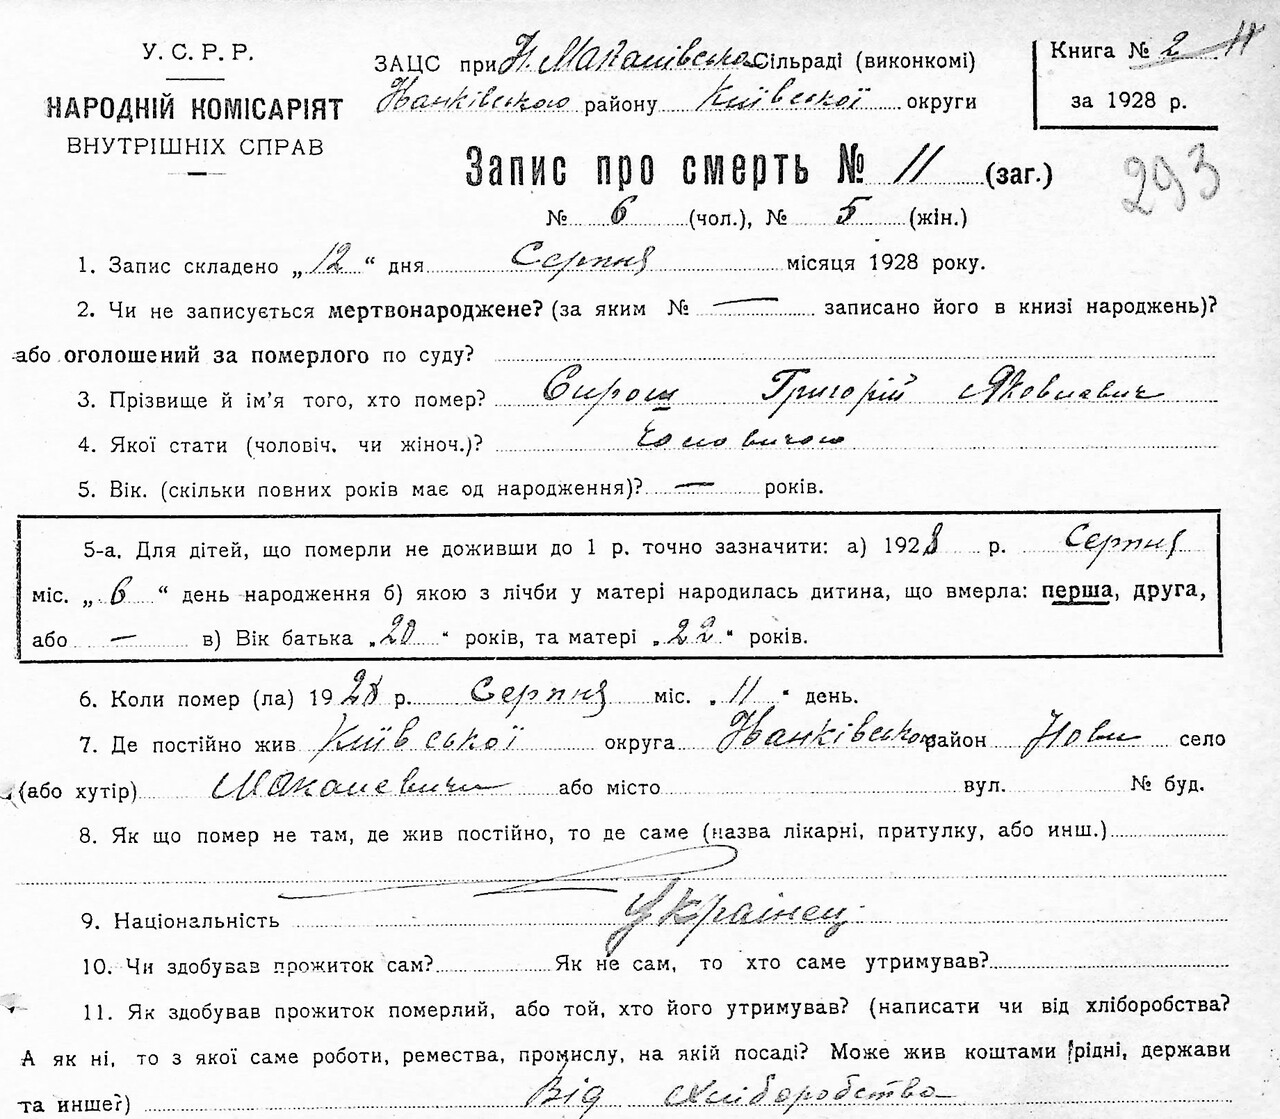 У. С. Р. Р.
НАРОДНІЙ КОМІСАРІЯТ
ВНУТРІШНІХ СПРАВ
ЗАЦС при Н. Макалівська Сільраді (виконкомі)
району Київської округи
Книга № 2 11
за 1928 р.
Запис про смерть № 11 (заг.)
293
№ 6 (чол.), № 5 (жін.)
1. Запис складено „12“ дня Серпня місяця 1928 року.
2. Чи не записується мертвонароджене? (за яким № — записано його в книзі народжень)?
або оголошений за померлого по суду?
3. Прізвище й ім'я того, хто помер? Сирош Григорій Яковлевич
4. Якої стати (чоловіч. чи жіноч.)? Чоловичою
5. Вік. (скільки повних років має од народження)? — років.
5-а. Для дітей, що померли не доживши до 1 р. точно зазначити: а) 1928 р. Серпня
міс. „6“ день народження б) якою з лічби у матері народилась дитина, що вмерла: перша, друга,
або — в) Вік батька „20“ років, та матері „22“ років.
6. Коли помер (ла) 1928 р. Серпня міс. „11“ день.
7. Де постійно жив Київської округа район Нови село
(або хутір) Макалевичи або місто вул. № буд.
8. Як що помер не там, де жив постійно, то де саме (назва лікарні, притулку, або инш.)
9. Національність Українец
10. Чи здобував прожиток сам? Як не сам, то хто саме утримував?
11. Як здобував прожиток померлий, або той, хто його утримував? (написати чи від хліборобства?
А як ні, то з якої саме роботи, ремества, промислу, на якій посаді? Може жив коштами рідні, держави
та инше?) Від хліборобства